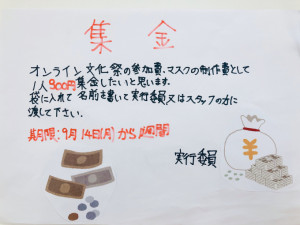 集金
オンライン文化祭の参加費、マスクの制作費として
1人900円集金したいと思います。
袋に入れて名前を書いて実行委員又はスタッフの方に
渡して下さい。
期限:9月14日(月)から1週間
実行委員
¥